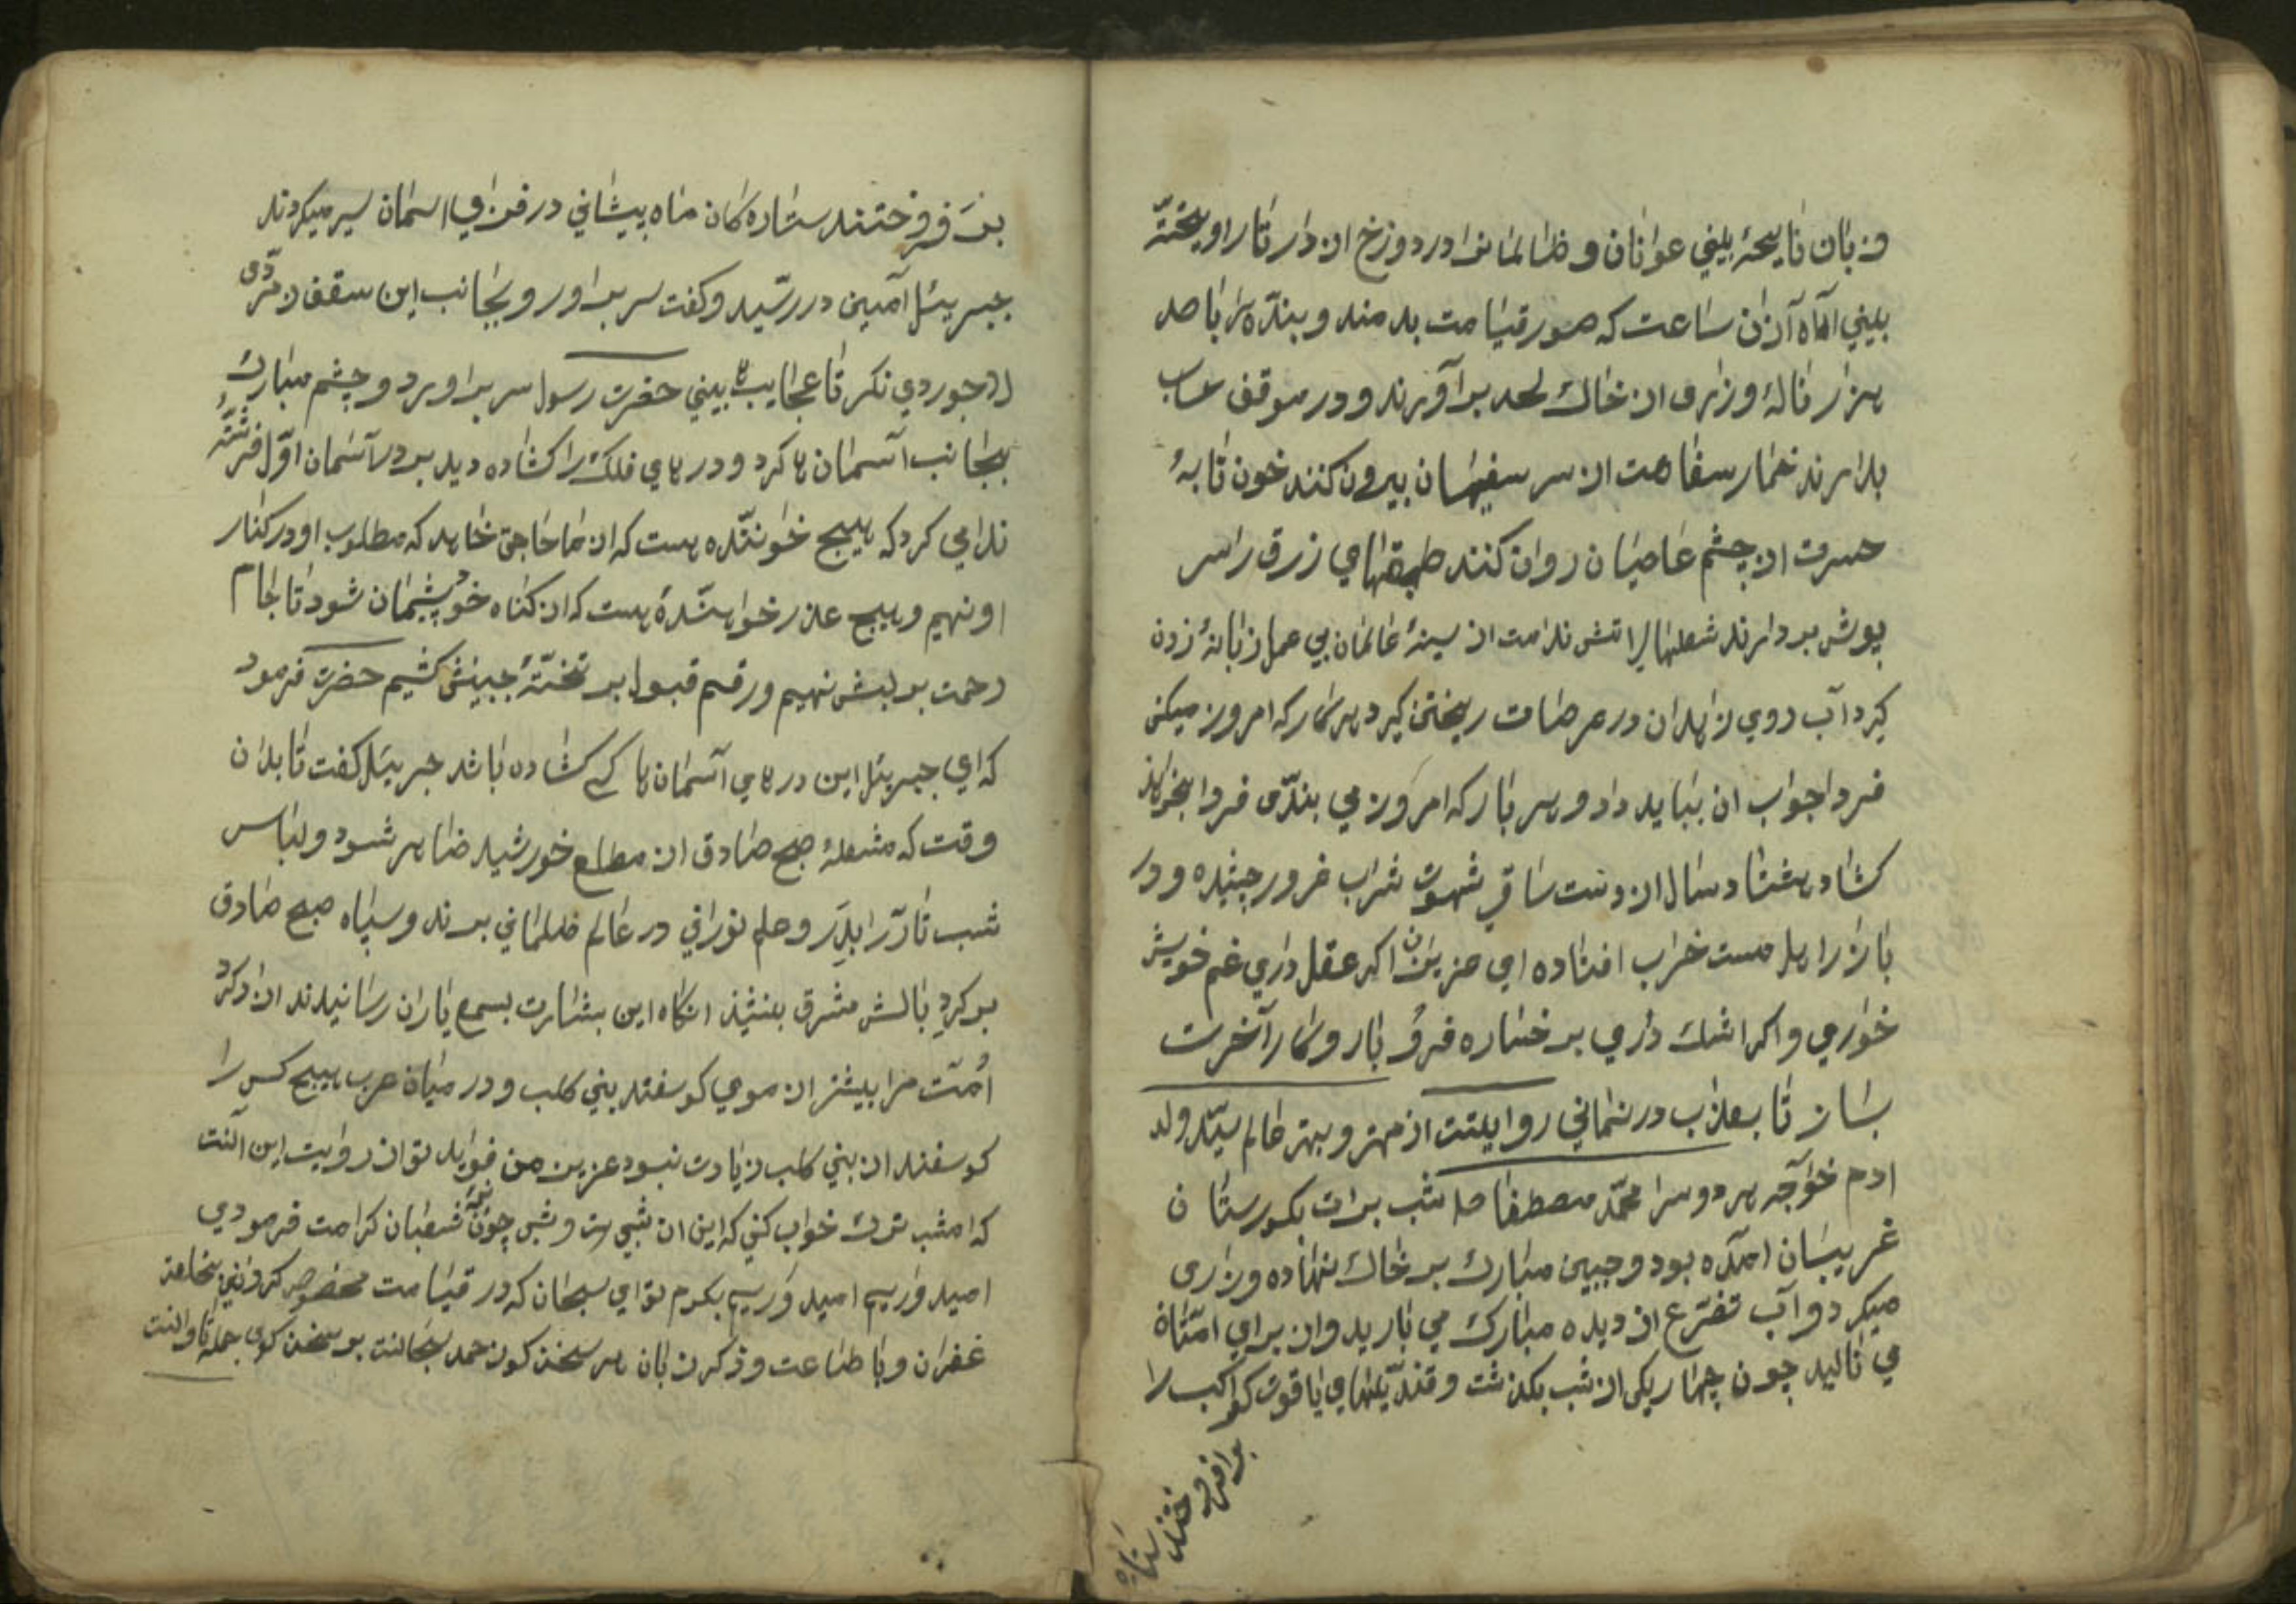 وزبان نايحهٔ بيني عوانان و ظالمانرا در دوزخ از دار نار اويخته
بيني اه‌اه آن زن ساعت كه صور قيامت بدمند و بندّه را باصد
هزار نالهٔ وزارى از خاك لحد برآورند و در موقف حساب
بدارند خمار سفاهت از سر سفيهان بيرون كنند خون تابهٔ
حسرت از چشم عاصيان روان كنند طبقهاي زرق را سر
پوش بردارند شعلهاي اتش ندامت از سينهٔ عالمان بي عمل زبانهٔ زدن
كيرد آب روي زاهدان در عرصات ريختن كيرد هر كار كه امروز ميكنى
فردا جواب ان ببايد داد و هر بار كه امروز مي بندّى فردا بخواهند
كشاد هشتاد سال از دست ساقي شهوت شراب غرور چشيده و در
بازار اهل مست خراب افتاده اي عزيز من اكر عقل داري غم خويش
خواري و اكر اشك داري بر خساره فرو بار و كار آخرت
بساز تا بعذاب در نماني روايتست از مهتر و بهتر عالم سيّد ولد
ادم خوآجه هر دو سرا محمّد مصطفا صلـ شب برات بكورستان
غريبان امدّه بود و جبين مبارك بر خاك نهاده وزارى
ميكرد و آب تضرّع از ديده مبارك مي باريد و از براي امّتان
مي ناليد چون چهار يكى از شب بكذشت و قنديلهاي ياقوت كواكب را
برافروختند ستاره
برفروختند ستاره كان ماه پيشاني در فراقي اسمان سير ميكردند
جبرييل آمين در رسيد و كفت سر براور و بجانب اين سقف زمرّدى
لاجوردي نكر تا عجايب ها بيني حضرت رسول سر براورد و چشم مبارك
بجانب آسمان ها كرد و در هاي فلك را كشاده ديد بر در آسمان اوّل فرشته
نداي كرد كه هيچ خوانندّه هست كه از ما حاجتى خاهد كه مطلوب او در كنار
او نهيم و هيچ عذر خواهندّهٔ هست كه از كناه خود پشيمان شود تا جام
رحمت بر لبش نهيم و رقم قبول بر تختهٔ جبينش كشيم حضرت فرمود
كه اي جبرييل اين در هاي آسمان ها كي كشاده باشد جبرييل كفت تا بدان
وقت كه مشعلهٔ صبح صادق از مطلع خورشيد ظاهر شود و لباس
شب تار را بدّرد و علم نوراني در عالم ظلماني برند و سپاه صبح صادق
بر كرد بالش مشرق بنشيند انكاه اين بشارت بسمع ياران رسانيدند ازاد كرد
اُمّت مرا بيشتر از موي كوسفند بني كلب و در ميان عرب هيچ كس را
كوسفند از بني كلب زيادت نبود عزيز من فوايد تو از روايت اين آنست
كه امشب ترك خواب كني كه اين از شبي هست و شبي چون نيمهٔ شعبان كرامت فرمودي
اميد واريم اميد واريم بكرم تو اي سبحان كه در قيامت مخصوص كرداني بخلعت
غفران و با طاعت و ذكر زبان هر سخن كون حمد سبحانست بر سخن كوى جمله تاوانست